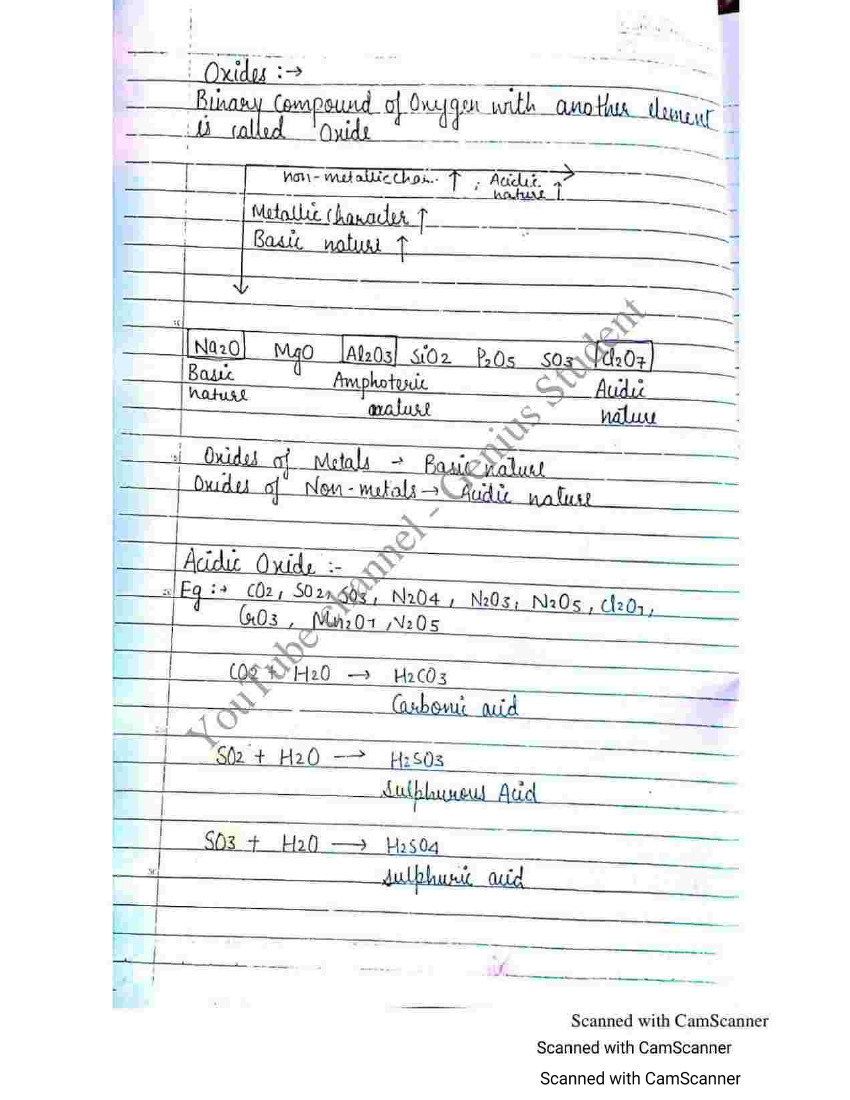 Oxides :→
Binary compound of Oxygen with another element
is called Oxide
non-metallic char. ↑ , Acidic nature ↑
Metallic character ↑
Basic nature ↑
Na2O MgO Al2O3 SiO2 P2O5 SO3 Cl2O7
Basic nature Amphoteric nature Acidic nature
Oxides of Metals → Basic nature
Oxides of Non-metals → Acidic nature
Acidic Oxide :-
Eg :→ CO2, SO2, SO3, N2O4, N2O3, N2O5, Cl2O7,
CrO3, Mn2O7, V2O5
CO2 + H2O → H2CO3
Carbonic acid
SO2 + H2O → H2SO3
Sulphurous Acid
SO3 + H2O → H2SO4
Sulphuric acid
YouTube channel - Genius Student
Scanned with CamScanner
Scanned with CamScanner
Scanned with CamScanner